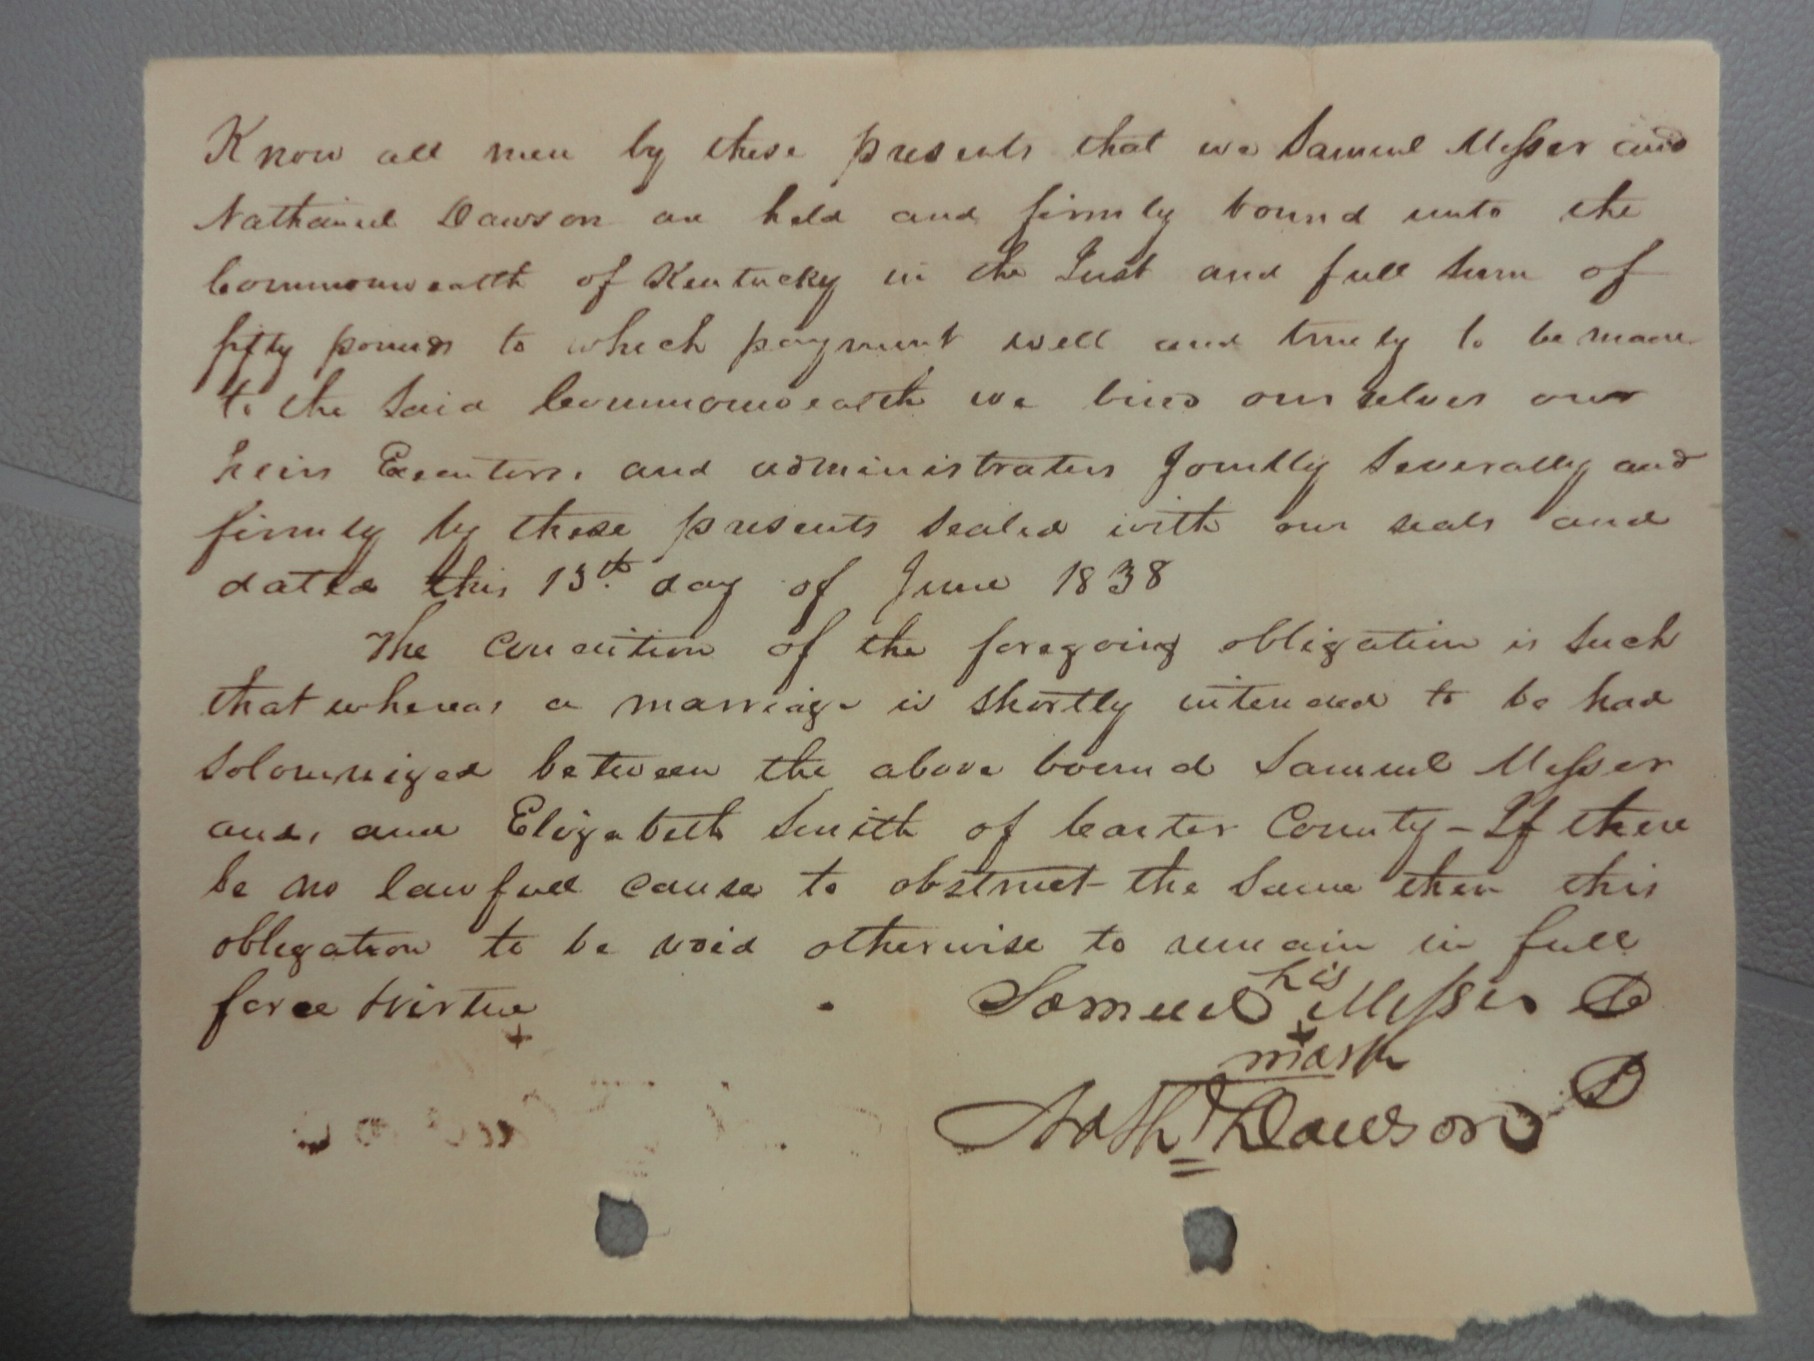 Know all men by these presents that we Samuel Messer and
Nathaniel Dawson are held and firmly bound unto the
Commonwealth of Kentucky in the Just and full Sum of
fifty pounds to which payment well and truely to be made
to the said Commonwealth we bind ourselves our
heirs Executors, and administrators Jointly Severally and
firmly by these presents sealed with our seals and
dated this 13th day of June 1838
The Condition of the foregoing obligation is Such
that whereas a marriage is shortly intended to be had
Solomnized between the above bound Samuel Messer
and, and Elizabeth Smith of Carter County - If there
be no lawfull cause to obstruct the Same then this
obligation to be void otherwise to remain in full
force & virtue
his
Samuel + Messer
mark
Nath Dawson